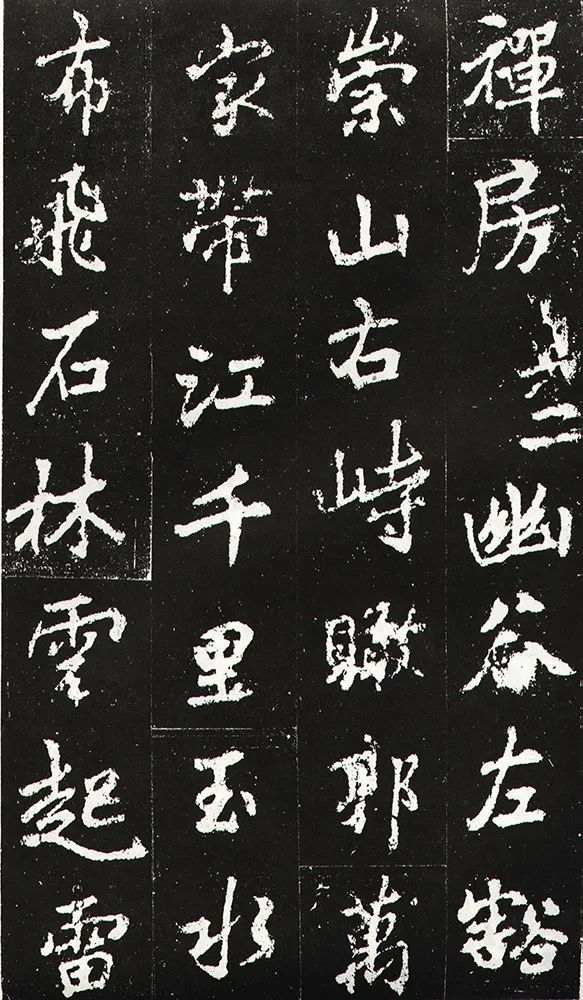 禪房其二幽谷左豁
崇山右峙瞰郭萬
家帶江千里玉水
布飛石林雲起雷